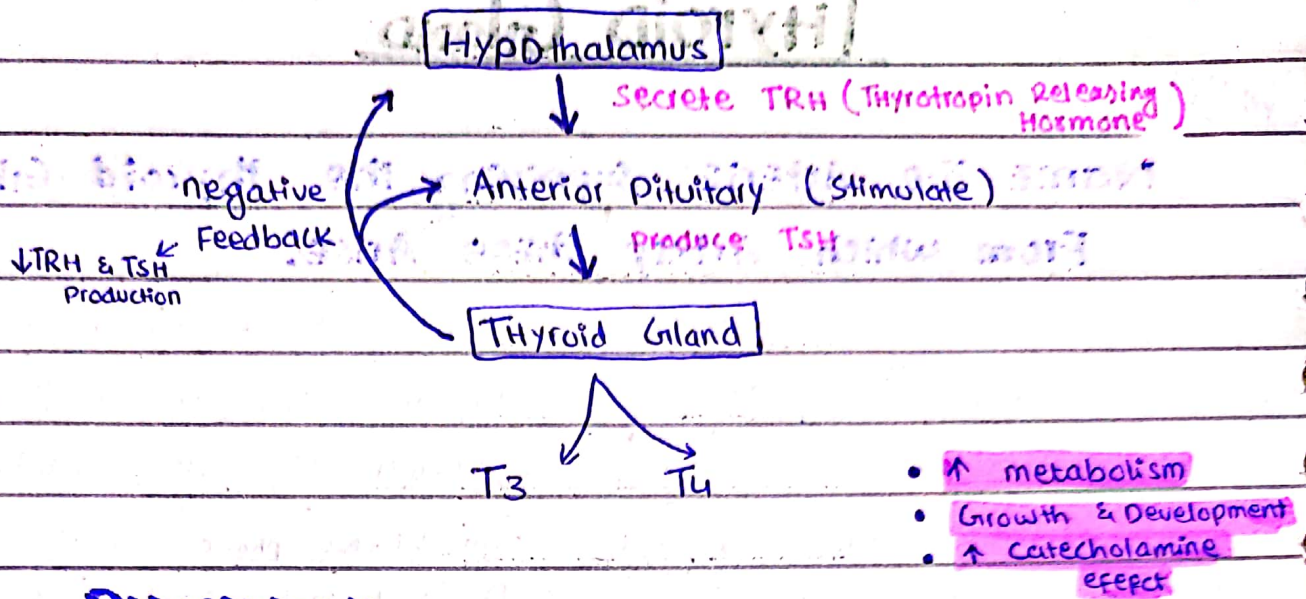 Hypothalamus
Secrete TRH (Thyrotropin Releasing
Hormone)
negative
Feedback
Anterior Pituitary (Stimulate)
↓TRH & TSH
Production
Produce TSH
Thyroid Gland
T3 T4
• ↑ metabolism
• Growth & Development
• ↑ catecholamine
effect